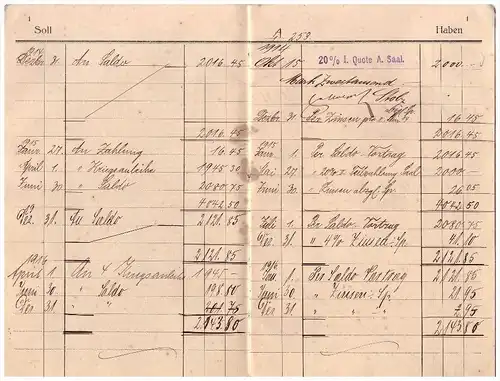 1
Soll
1914
31. An Saldo 2016.45
2016.45
1915
27. An Zahlung 16.45
April 1. " Kriegsanleihe 1945.30
Juni 30. " Saldo 2080.75
4042.50
31. An Saldo 2121.85
2121.85
1916
April 1 An 4 Kriegsanleihe 1945.-
Juni 30 " Saldo 198.80
31 " "
2143.80
1
Haben
259
1914
Okt 15 20% I. Quote A. Saal. 2000.-
Mark Zweitausend
Stolz
31 Per Zinsen pro 16.45
2016.45
1915
1. Per Saldo-Vortrag 2016.45
27 2000.-
30 " Zinsen abzgl. Sp. 26.05
4042.50
Juli 1 Per Saldo-Vortrag 2080.75
31. " 4% Zinsen 41.10
2121.85
1. Per Saldo Vortrag 2121.85
Juni 30. " Zinsen 21.95
31 " "
2143.80